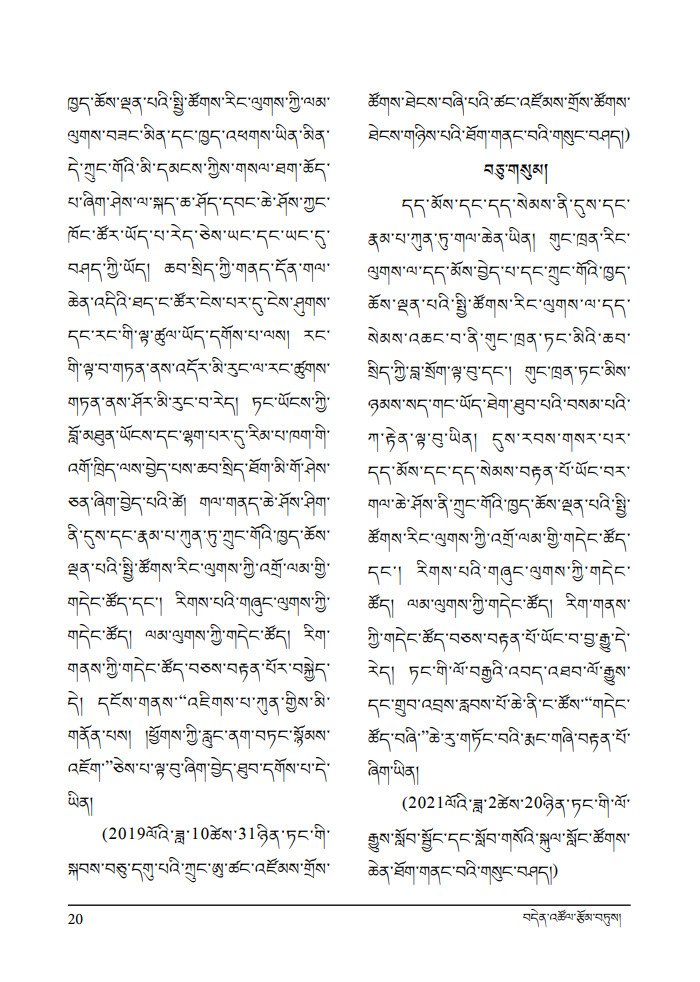 ཁྱད་ཆོས་ལྡན་པའི་སྤྱི་ཚོགས་རིང་ལུགས་ཀྱི་ལམ་
ལུགས་བཟང་མིན་དང་ཁྱད་འཕགས་ཡིན་མིན་
དེ་ཀྲུང་གོའི་མི་དམངས་ཀྱིས་གསལ་ཐག་ཆོད་
པ་ཞིག་ཤེས་ལ་སྐད་ཆ་ཤོད་དབང་ཆེ་ཤོས་ཀྱང་
ཁོང་ཚོར་ཡོད་པ་རེད་ཅེས་ཡང་དང་ཡང་དུ་
བཤད་ཀྱི་ཡོད། ཆབ་སྲིད་ཀྱི་གནད་དོན་གལ་
ཆེན་འདིའི་ཐད་ང་ཚོར་ངེས་པར་དུ་ངེས་ཤུགས་
དང་རང་གི་ལྟ་ཚུལ་ཡོད་དགོས་པ་ལས། རང་
གི་ལྟ་བ་གཏན་ནས་འདོར་མི་རུང་ལ་རང་ཚུགས་
གཏན་ནས་ཤོར་མི་རུང་བ་རེད། ཏང་ཡོངས་ཀྱི་
བློ་མཐུན་ཡོངས་དང་ལྷག་པར་དུ་རིམ་པ་ཁག་གི་
འགོ་ཁྲིད་ལས་བྱེད་པས་ཆབ་སྲིད་ཐོག་མི་གོ་ཤེས་
ཅན་ཞིག་བྱེད་པའི་ཚེ། གལ་གནད་ཆེ་ཤོས་ཤིག་
ནི་དུས་དང་རྣམ་པ་ཀུན་ཏུ་ཀྲུང་གོའི་ཁྱད་ཆོས་
ལྡན་པའི་སྤྱི་ཚོགས་རིང་ལུགས་ཀྱི་འགྲོ་ལམ་གྱི་
གདེང་ཚོད་དང་། རིགས་པའི་གཞུང་ལུགས་ཀྱི་
གདེང་ཚོད། ལམ་ལུགས་ཀྱི་གདེང་ཚོད། རིག་
གནས་ཀྱི་གདེང་ཚོད་བཅས་བརྟན་པོར་བསྐྱེད་
དེ། དངོས་གནས་“འཇིགས་པ་ཀུན་གྱིས་མི་
གནོན་པས། །ཕྱོགས་ཀྱི་རླུང་ནག་བཏང་སྙོམས་
འཇོག་”ཅེས་པ་ལྟ་བུ་ཞིག་བྱེད་ཐུབ་དགོས་པ་དེ་
ཡིན།
(2019ལོའི་ཟླ་10ཚེས་31ཉིན་ཏང་གི་
སྐབས་བཅུ་དགུ་པའི་ཀྲུང་ཨུ་ཚང་འཛོམས་གྲོས་
ཚོགས་ཐེངས་བཞི་པའི་ཚང་འཛོམས་གྲོས་ཚོགས་
ཐེངས་གཉིས་པའི་ཐོག་གནང་བའི་གསུང་བཤད།)
བཅུ་གསུམ།
དད་མོས་དང་དད་སེམས་ནི་དུས་དང་
རྣམ་པ་ཀུན་ཏུ་གལ་ཆེན་ཡིན། གུང་ཁྲན་རིང་
ལུགས་ལ་དད་མོས་བྱེད་པ་དང་ཀྲུང་གོའི་ཁྱད་
ཆོས་ལྡན་པའི་སྤྱི་ཚོགས་རིང་ལུགས་ལ་དད་
སེམས་འཆང་བ་ནི་གུང་ཁྲན་ཏང་མིའི་ཆབ་
སྲིད་ཀྱི་བླ་སྲོག་ལྟ་བུ་དང་། གུང་ཁྲན་ཏང་མིས་
ཉམས་སད་གང་ཡོད་ཐེག་ཐུབ་པའི་བསམ་པའི་
ཀ་རྟེན་ལྟ་བུ་ཡིན། དུས་རབས་གསར་པར་
དད་མོས་དང་དད་སེམས་བརྟན་པོ་ཡོང་བར་
གལ་ཆེ་ཤོས་ནི་ཀྲུང་གོའི་ཁྱད་ཆོས་ལྡན་པའི་སྤྱི་
ཚོགས་རིང་ལུགས་ཀྱི་འགྲོ་ལམ་གྱི་གདེང་ཚོད་
དང་། རིགས་པའི་གཞུང་ལུགས་ཀྱི་གདེང་
ཚོད། ལམ་ལུགས་ཀྱི་གདེང་ཚོད། རིག་གནས་
ཀྱི་གདེང་ཚོད་བཅས་བརྟན་པོ་ཡོང་བ་བྱ་རྒྱུ་དེ་
རེད། ཏང་གི་ལོ་བརྒྱའི་འབད་འཐབ་ལོ་རྒྱུས་
དང་གྲུབ་འབྲས་རླབས་པོ་ཆེ་ནི་ང་ཚོས་“གདེང་
ཚོད་བཞི་”ཆེ་རུ་གཏོང་བའི་རྨང་གཞི་བརྟན་པོ་
ཞིག་ཡིན།
(2021ལོའི་ཟླ་2ཚེས་20ཉིན་ཏང་གི་ལོ་
རྒྱུས་སློབ་སྦྱོང་དང་སློབ་གསོའི་སྐུལ་སློང་ཚོགས་
ཆེན་ཐོག་གནང་བའི་གསུང་བཤད།)
20
བདེན་འཚོལ་རྩོམ་བཏུས།